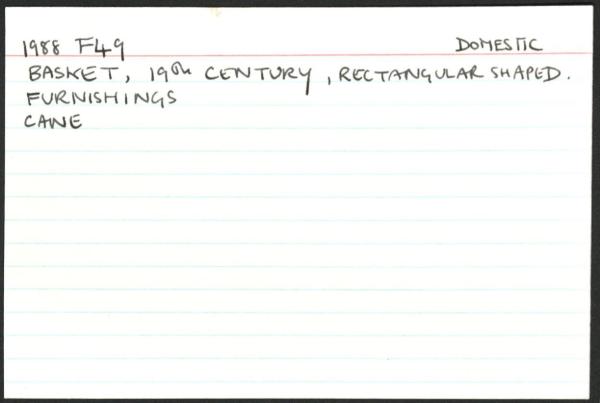 1988 F49 DOMESTIC
BASKET, 19th CENTURY, RECTANGULAR SHAPED.
FURNISHINGS
CANE